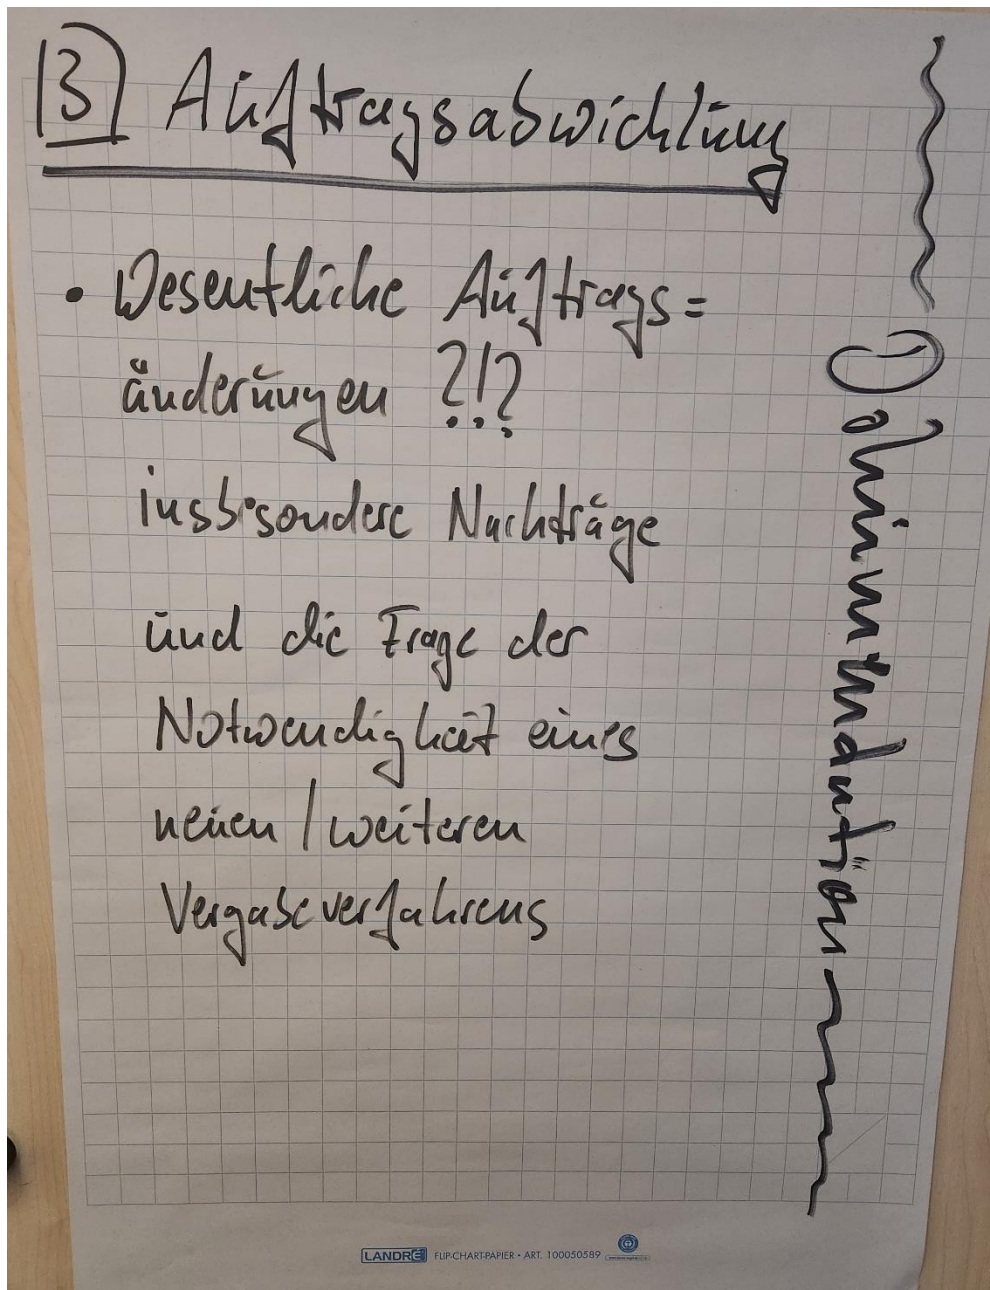 3 Auftragsabwicklung
• Wesentliche Auftrags=
änderungen ?!?
insbesondere Nachträge
und die Frage der
Notwendigkeit eines
neuen / weiteren
Vergabeverfahrens
Dokumentation
LANDRÉ FLIP-CHART-PAPIER • ART. 100050589